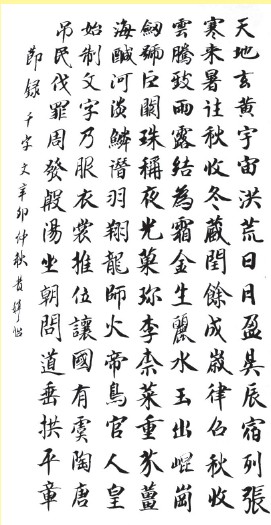 天地玄黄宇宙洪荒日月盈昃辰宿列張
寒来暑往秋收冬蔵閏餘成嵗律召秋收
雲騰致雨露結為霜金生麗水玉出崐崗
劒號巨闕珠稱夜光菓珍李柰菜重芥薑
海鹹河淡鱗潛羽翔龍師火帝鳥官人皇
始制文字乃服衣裳推位讓國有虞陶唐
吊民伐罪周發殷湯坐朝問道垂拱平章
節録千字文辛卯仲秋黄